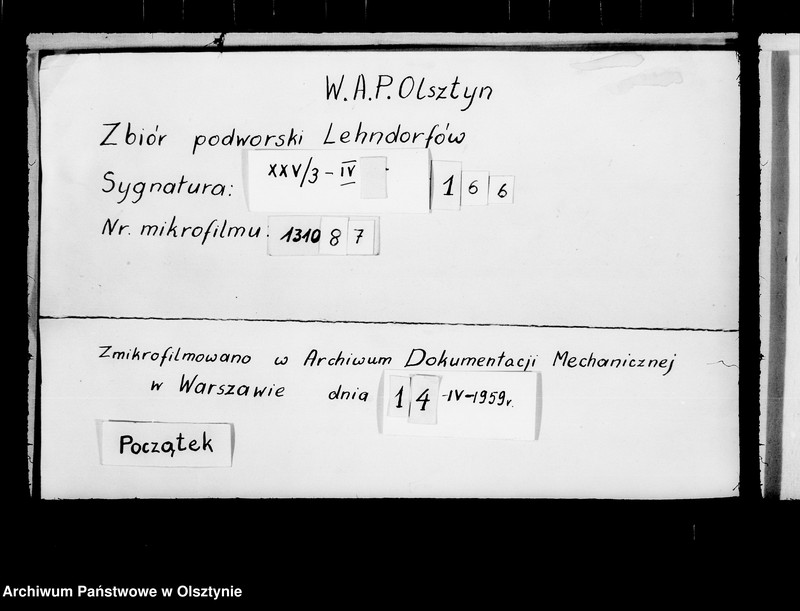 W.A.P. Olsztyn
Zbiór podworski Lehndorfów
Sygnatura: XXV/3 - IV 166
Nr. mikrofilmu: 131087
Zmikrofilmowano w Archiwum Dokumentacji Mechanicznej
w Warszawie dnia 14-IV-1959r.
Początek
Archiwum Państwowe w Olsztynie